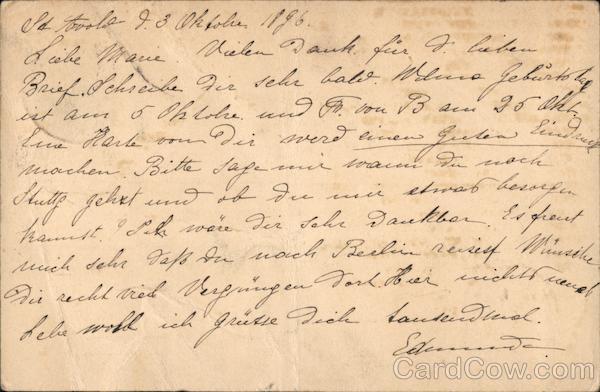 d. 3 Oktober 1896.
Liebe Marie. Vielen Dank für d. lieben
Brief. Schreibe Dir sehr bald. Wilma Geburtstag
ist am 5 Oktobre. und Fr. von B am 25 Okt.
Eine Karte von Dir werd einen guten Eindruck
machen. Bitte sage mir wann du nach
Stuttg gehst und ob du mir etwas besorgen
kannst? Ich wäre dir sehr Dankbar. Es freut
mich sehr daß du nach Berlin reisest Wünsche
Dir recht viel Vergnüngen dort. Hier nichts neues
Lebe wohl ich grüsse Dich tausendmal.
CardCow.com